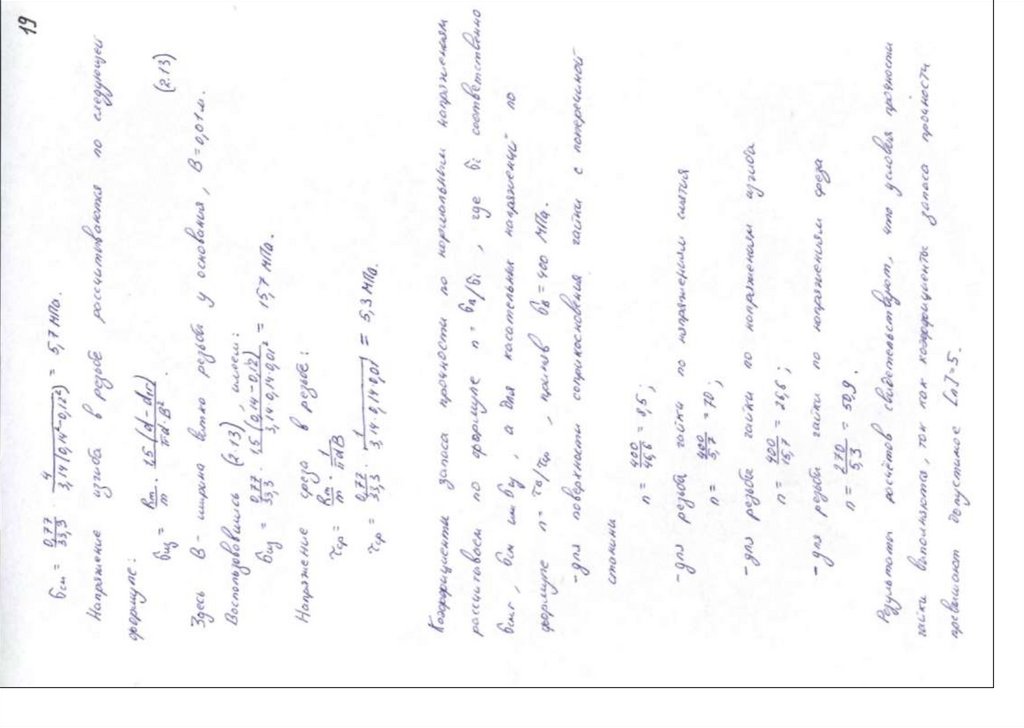 19
σсм = 0,77/33,3 · 4/3,14(0,14²-0,12²) = 5,7 МПа.
Напряжение изгиба в резьбе рассчитываются по следующей
формуле:
σиз = Rm/m · 1,5(d-dвс)/πd·B². (2.13)
Здесь B - ширина витка резьбы у основания, B=0,01 м.
Воспользовавшись (2.13), имеем:
σиз = 0,77/33,3 · 1,5(0,14-0,12)/3,14·0,14·0,01² = 15,7 МПа.
Напряжение среза в резьбе:
τср = Rm/m · 1/πdB
τср = 0,77/33,3 · 1/3,14·0,14·0,01 = 5,3 МПа.
Коэффициенты запаса прочности по нормальным напряжениям
рассчитываем по формуле n = σв/σi, где σi соответственно
σсм.г, σсм или σиз, а для касательных напряжений по
формуле n = τв/τср, приняв σв = 400 МПа.
-для поверхности соприкосновения гайки с поперечиной
станины
n = 400/46,6 = 8,5;
-для резьбы гайки по напряжениям смятия
n = 400/5,7 = 70;
-для резьбы гайки по напряжениям изгиба
n = 400/15,7 = 26,6;
-для резьбы гайки по напряжениям среза
n = 270/5,3 = 50,9.
Результаты расчётов свидетельствуют, что условия прочности
гайки выполняются, так как коэффициенты запаса прочности
превышают допустимое [n]=5.